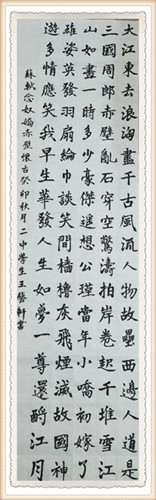 大江東去浪淘盡千古風流人物故壘西邊人道是
三國周郎赤壁亂石穿空驚濤拍岸卷起千堆雪江
山如畫一時多少豪傑遙想公瑾當年小喬初嫁了
雄姿英發羽扇綸巾談笑間檣櫓灰飛煙滅故國神
遊多情應笑我早生華發人生如夢一尊還酹江月
蘇軾念奴嬌赤壁懷古癸卯秋月二中學生王藝軒書